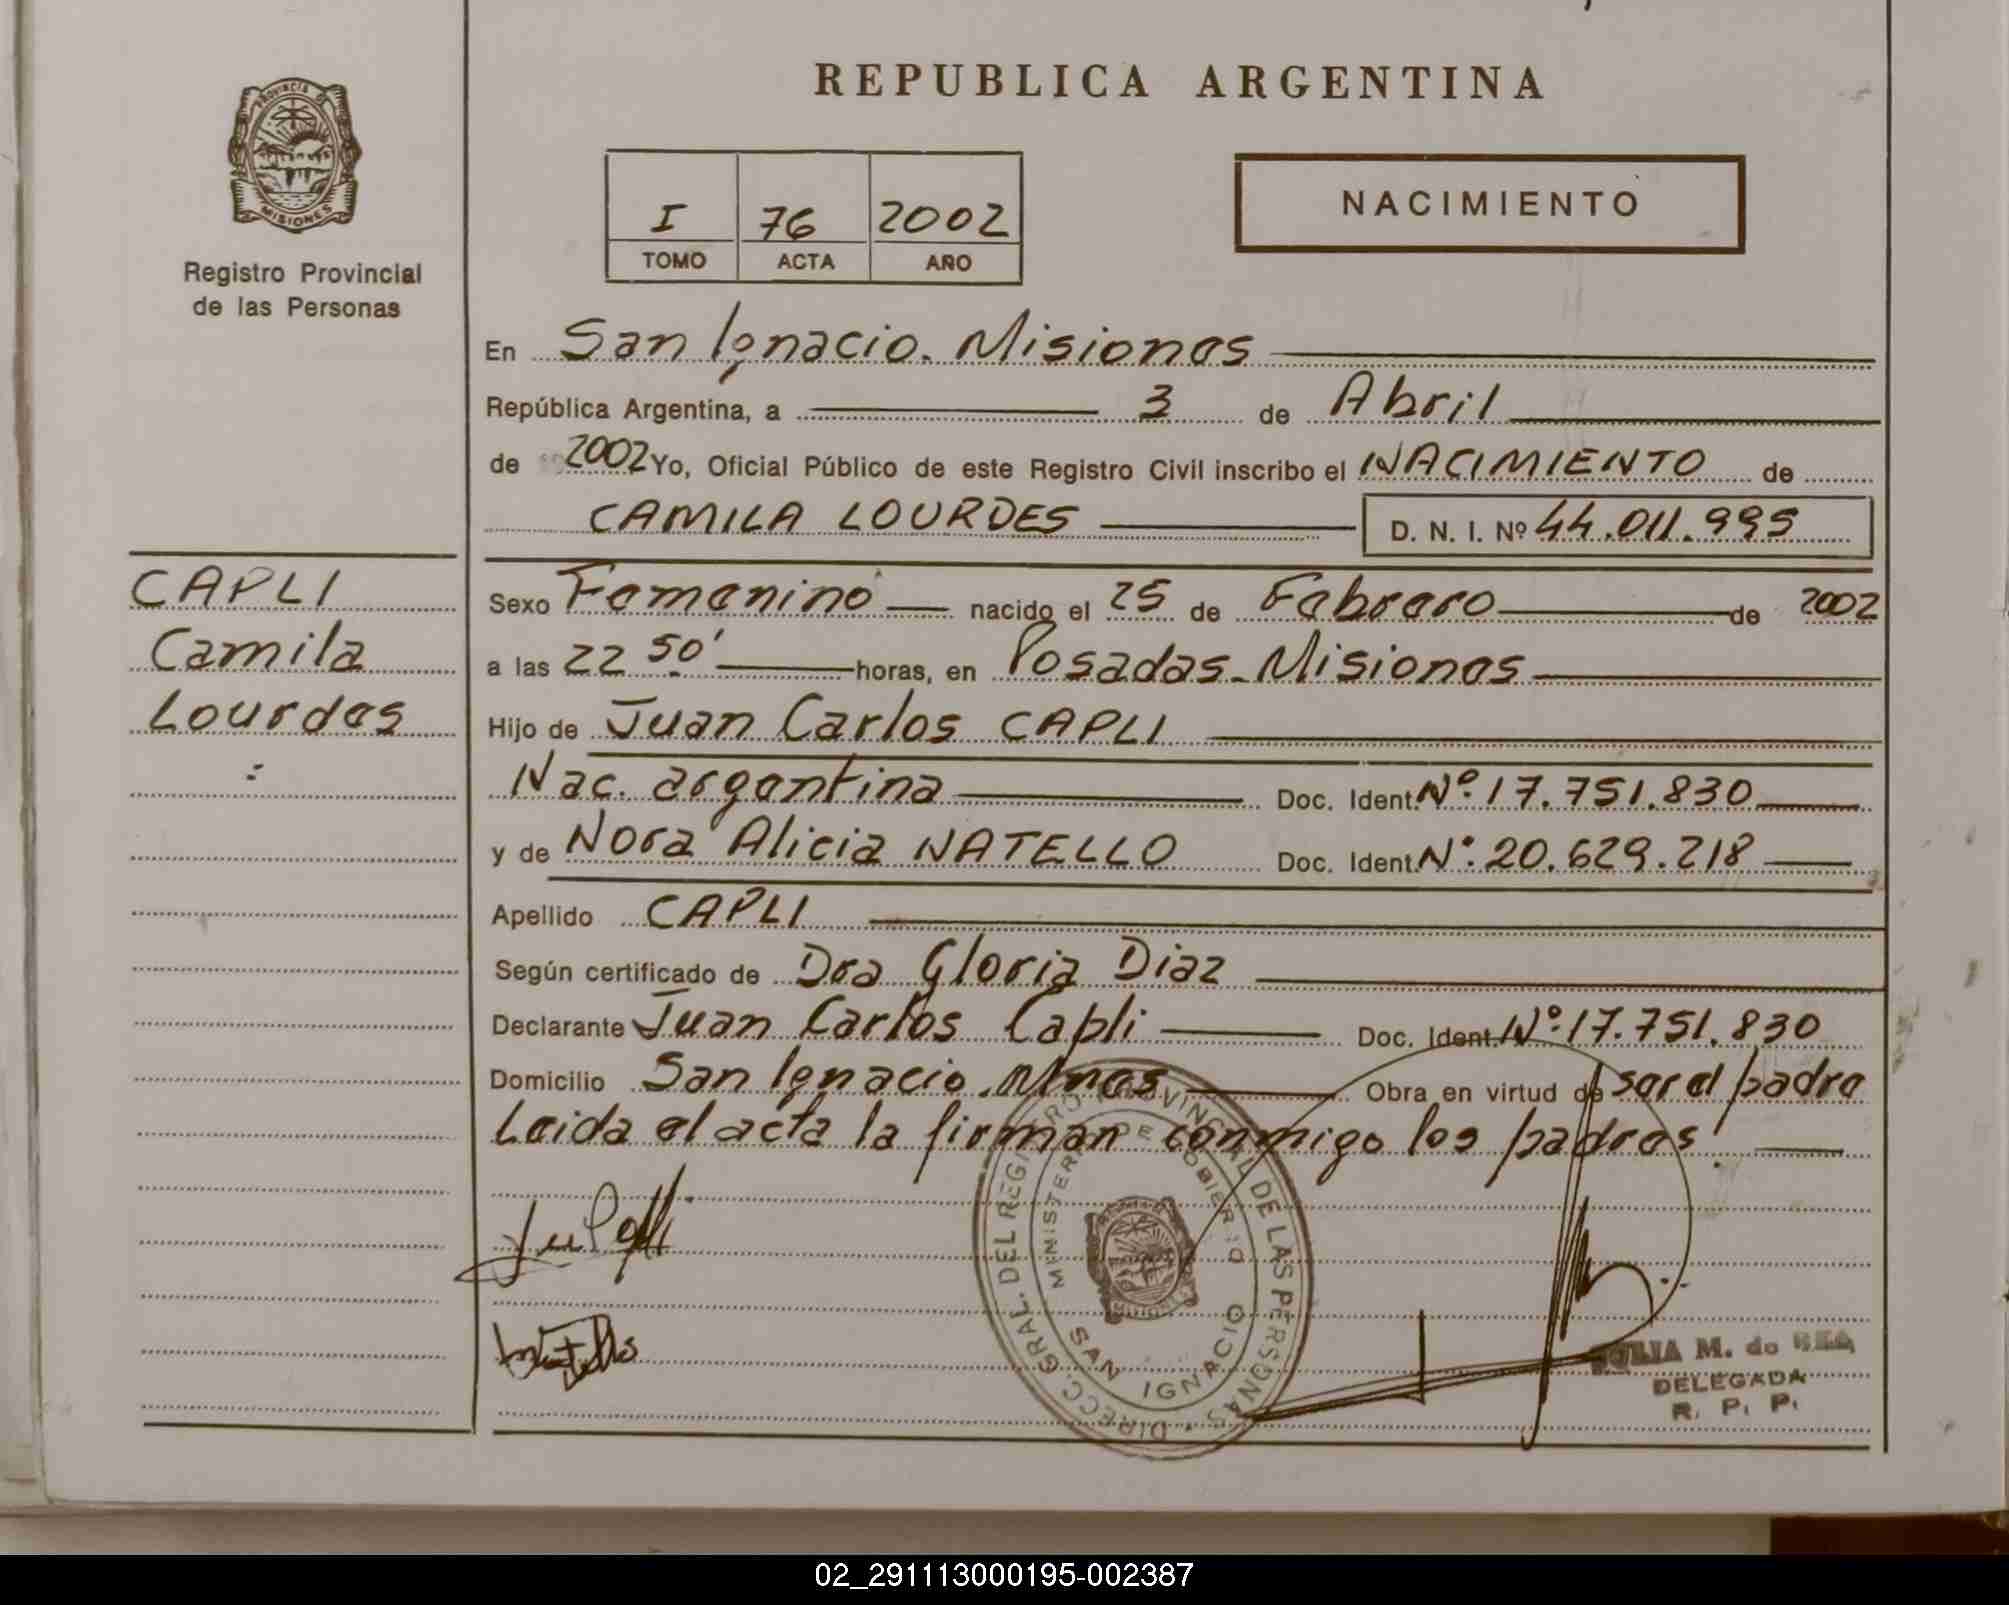 REPUBLICA ARGENTINA
PROVINCIA DE MISIONES
Registro Provincial
de las Personas
I 76 2002
TOMO ACTA AÑO
NACIMIENTO
En San Ignacio. Misiones
República Argentina, a 3 de Abril
de 2002 Yo, Oficial Público de este Registro Civil inscribo el NACIMIENTO de
CAMILA LOURDES D. N. I. Nº 44.011.995
CAPLI
Camila
Lourdes
Sexo Femenino nacido el 25 de Febrero de 2002
a las 22 50' horas, en Posadas-Misiones
Hijo de Juan Carlos CAPLI
Nac. argentina Doc. Ident. Nº 17.751.830
y de Nora Alicia NATELLO Doc. Ident. Nº 20.629.218
Apellido CAPLI
Según certificado de Dra Gloria Diaz
Declarante Juan Carlos Capli Doc. Ident. Nº 17.751.830
Domicilio San Ignacio. Mnes Obra en virtud de ser el padre
Leida el acta la firman conmigo los padres.
DIRECC. GRAL. DEL REGISTRO PROVINCIAL DE LAS PERSONAS
MINISTERIO DE GOBIERNO
MISIONES
SAN IGNACIO
M. de
DELEGADA
R. P. P.
02_291113000195-002387